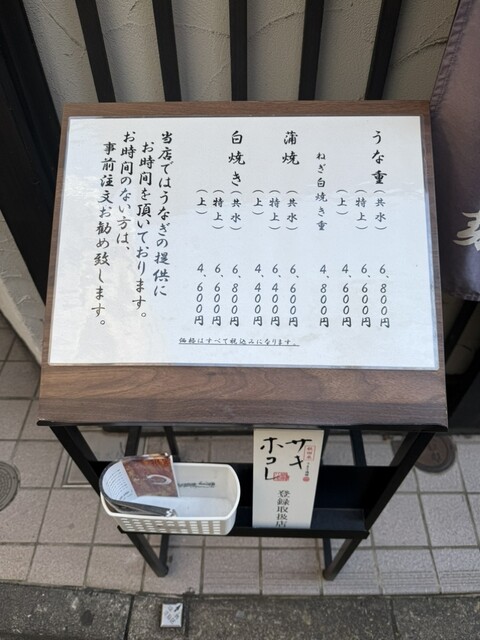 うな重(共水) 6,800円
(特上) 6,600円
(上) 4,600円
ねぎ白焼き重 4,800円
蒲焼(共水) 6,600円
(特上) 6,400円
(上) 4,400円
白焼き(共水) 6,800円
(特上) 6,600円
(上) 4,600円
当店ではうなぎの提供に
お時間を頂いております。
お時間のない方は、
事前注文お勧め致します。
価格はすべて税込みになります。
サキ
ホコレ
登録取扱店